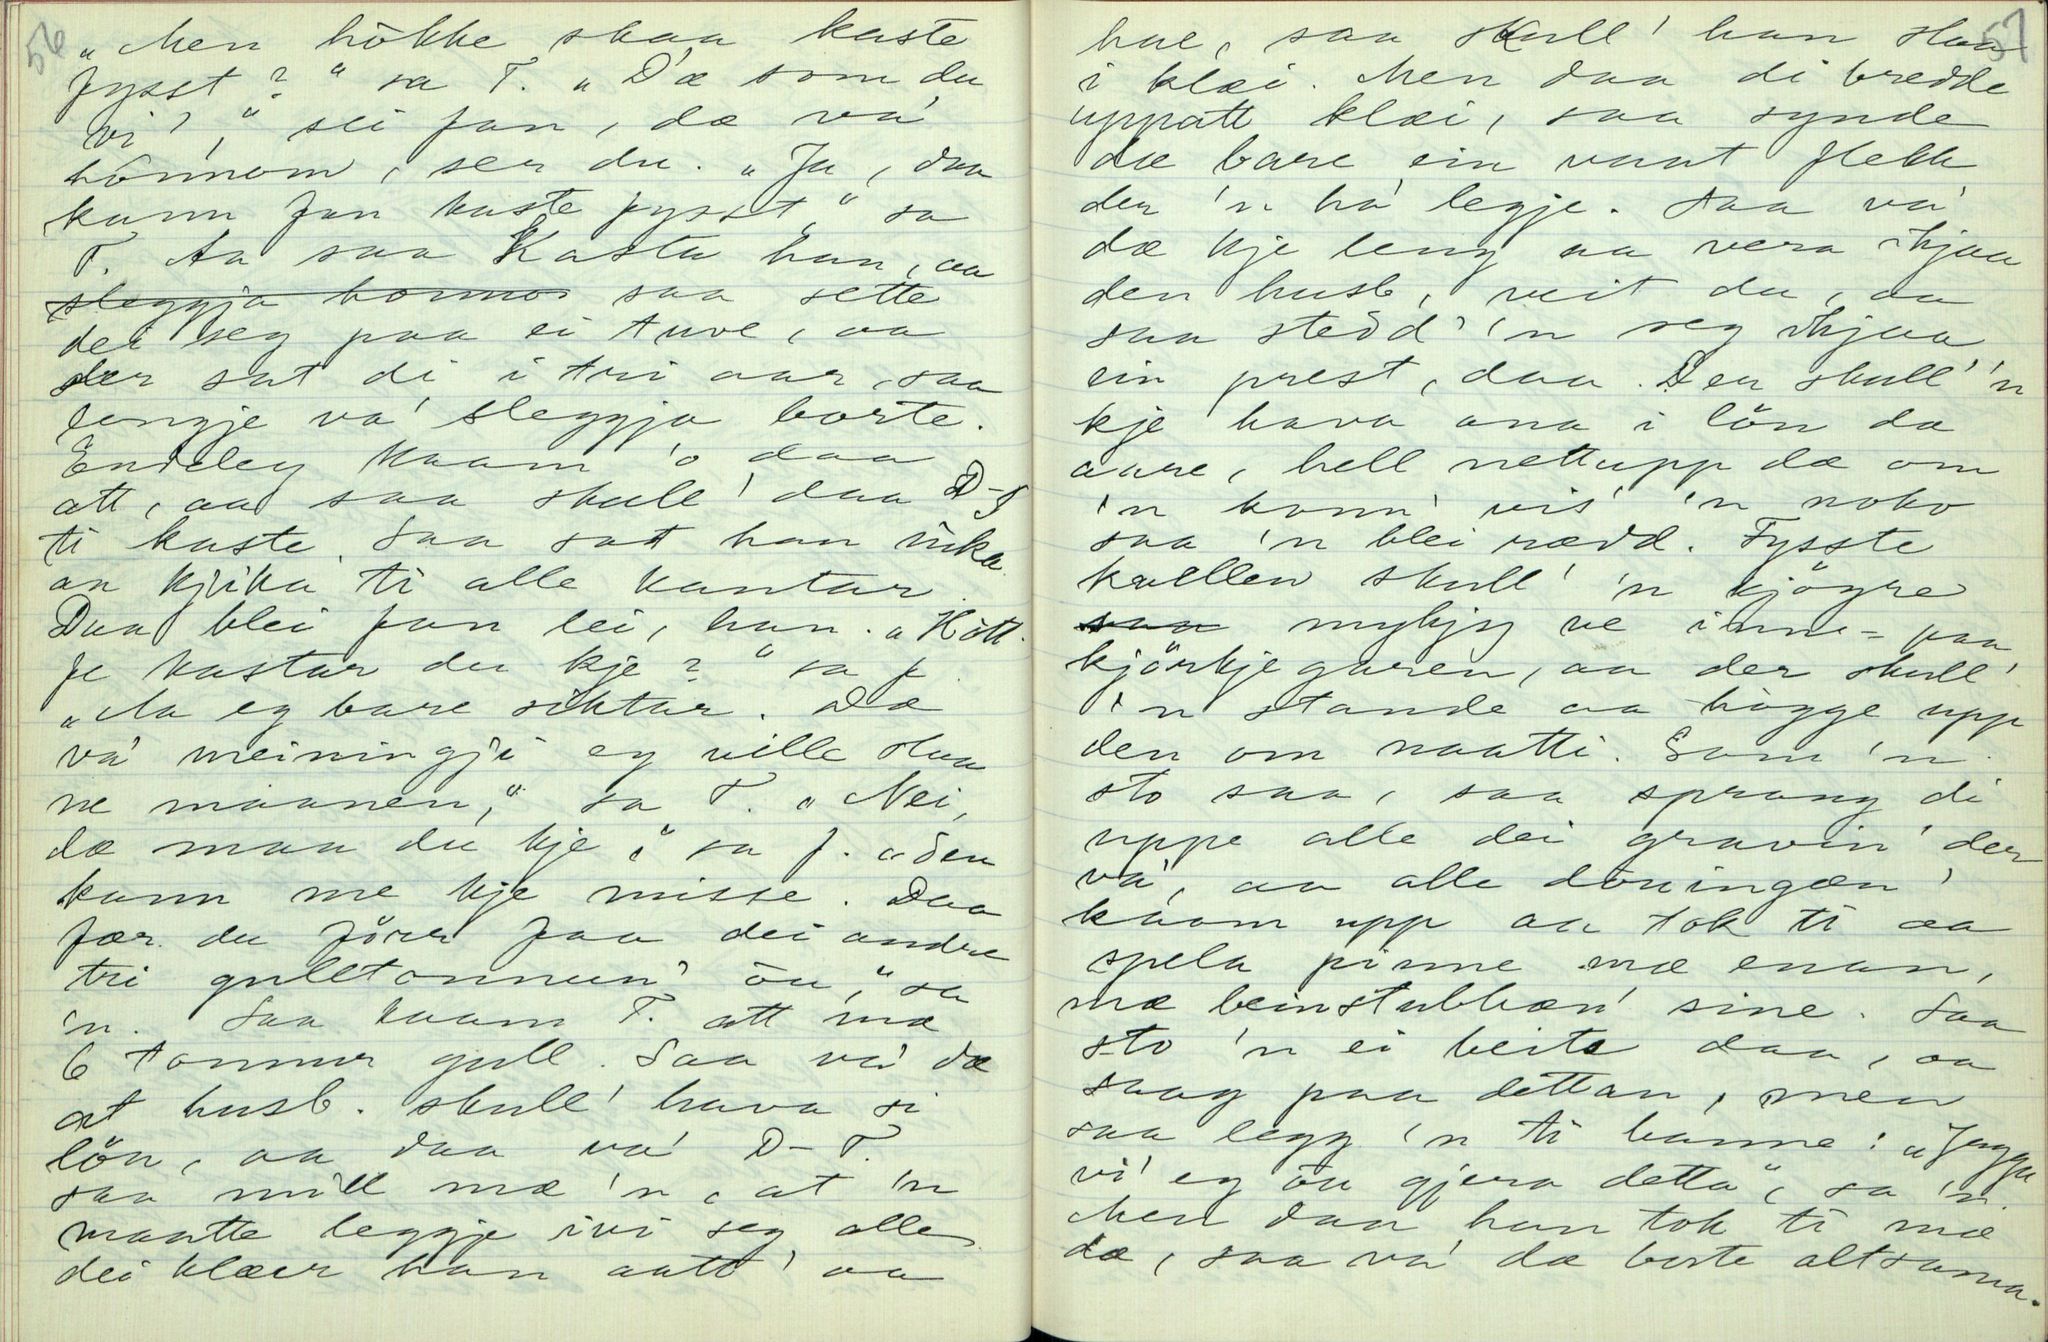 56
„Men hökke skaa kaste
fysst?“ sa T. „D'æ som du
vi',“ sei fan, dæ va'
hònnom, ser du. „Ja, daa
kann fan kaste fysst,“ sa
T. Aa saa kasta han, aa
sleggja saa sette
dei seg paa ei tuve, aa
der sat di i tri aar, saa
lengje va' sleggja borte.
Endeleg kaam 'o daa
att, aa saa skull' daa D-T
ti kaste. Saa sat han
aa kjika ti alle kantar.
Daa blei fan lei, han. „Kött
fe kastar du kje?“ sa f.
„Aa eg bare siktar. Dæ
va' meiningji eg ville slaa
ne maanen,“ sa T. „Nei,
dæ maa du kje“, sa f. „den
kann me kje misse. Daa
fær du förr faa dei andre
tri gulltonnun' òu,“ sa
'n. Saa kaam T. att mæ
6 tonnur gull. Saa va' dæ
at husb. skull' hava si
lön, aa daa va' D-T.
saa mill mæ 'n, at 'n
maatte leggje ivi seg alle
dei klær han aatt' aa
57
hae, saa skull' han slaa
i klæi. Men daa di bredde
uppatt klæi, saa synde
dæ bare ein vaat flekk
der 'n ha' legje. Saa va'
dæ kje leng aa vera ihjaa
den husb, veit du, aa
saa stedd' 'n seg ihjaa
ein prest, daa. Der skull' 'n
kje hava ana i lön da
aare, hell nettupp dæ om
'n kann' vis' 'n noko
saa 'n blei rædd. Fysste
kvellen skull' 'n kjögre
saa mykjy ve inne paa
kjörkjegaren, aa der skull'
'n stande aa högge upp
den om naatti. Som 'n
sto saa, saa sprang di
uppe alle dei gravin' der
va', aa alle dövingæn'
kaam upp aa tok ti aa
spela pinne mæ enan,
mæ beinstubbæn' sine. Saa
sto 'n ei beite daa, aa
saag paa dettan, men
saa legg 'n ti banne: „Jaggu
vi' eg òu gjera detta“, sa 'n.
Men daa han tok ti mæ
dæ, saa va' dæ borte altsama.